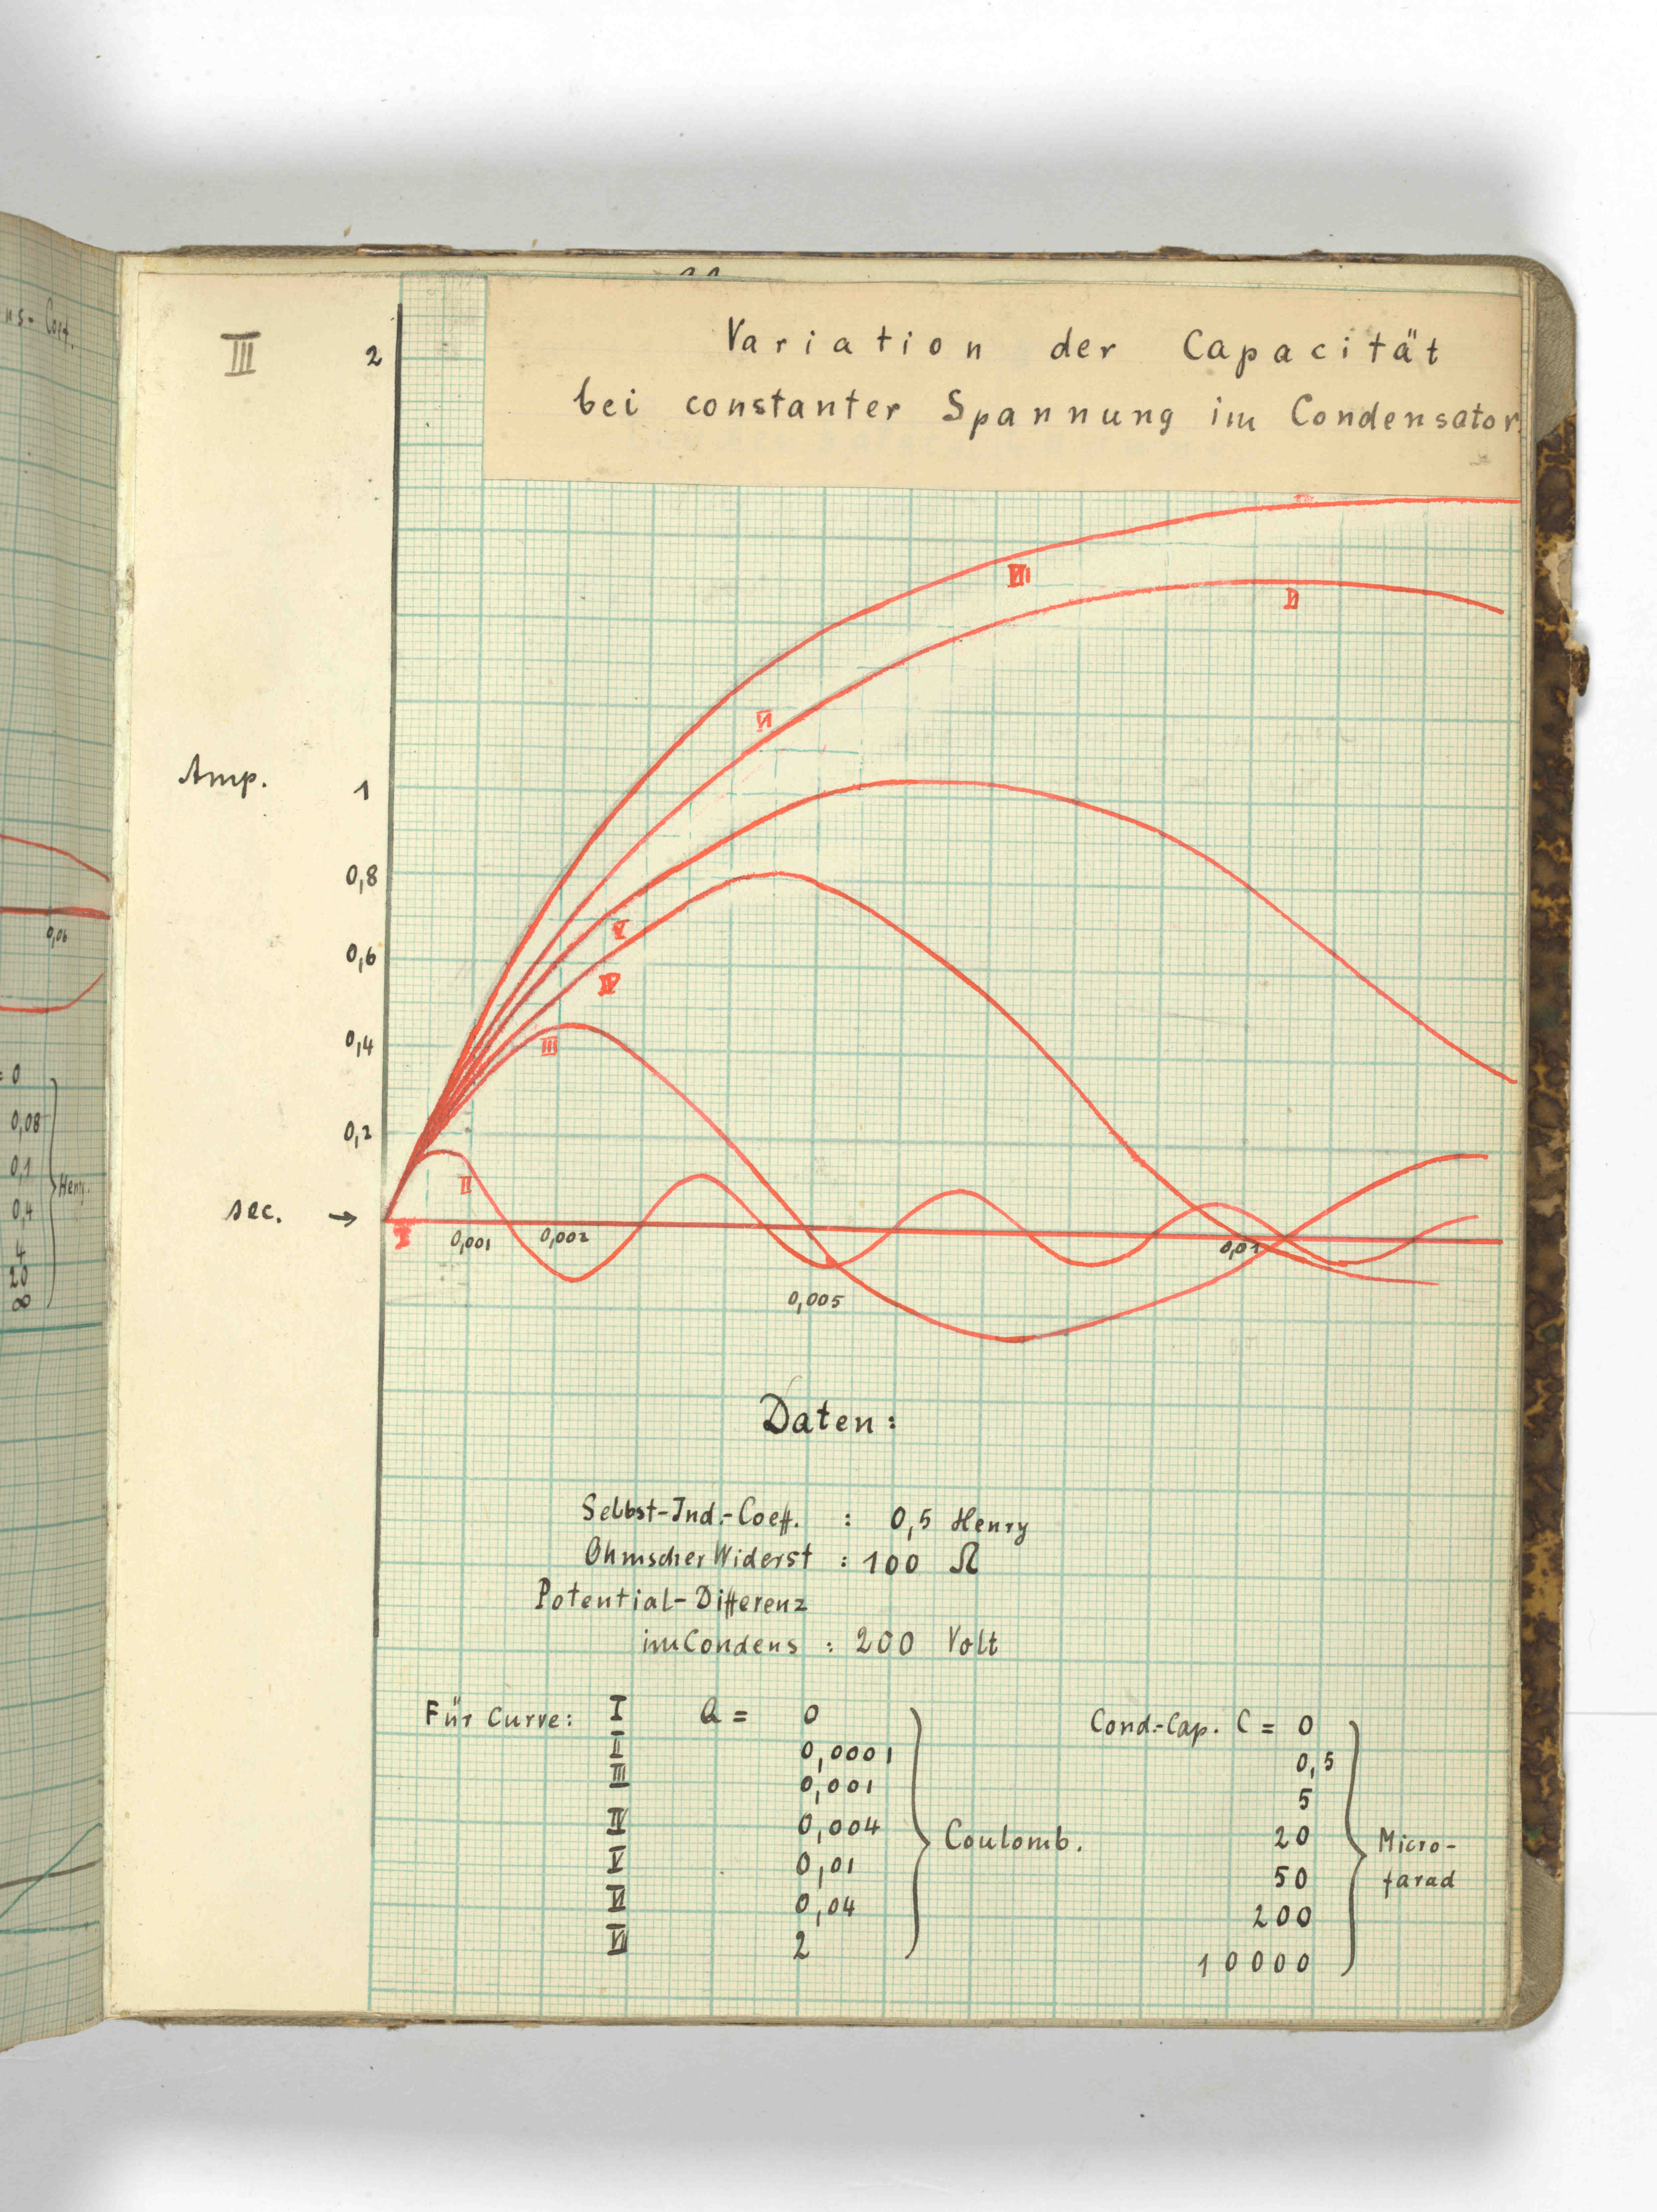 ns- Coef.
0,06
= 0
0,08
0,1
0,4
4
20
∞
Henry.
III
Variation der Capacität
bei constanter Spannung im Condensator.
2
Amp.
1
0,8
0,6
0,4
0,2
sec. →
VII
VI
VI
V
IV
III
II
I
0,001
0,002
0,005
0,01
Daten:
Selbst-Ind.-Coeff. : 0,5 Henry
Ohmscher Widerst : 100 Ω
Potential-Differenz
im Condens : 200 Volt
Für Curve: I Q = 0 Cond.-Cap. C = 0
II 0,0001 0,5
III 0,001 5
IV 0,004 Coulomb. 20 Micro-
V 0,01 50 farad
VI 0,04 200
VII 2 10000